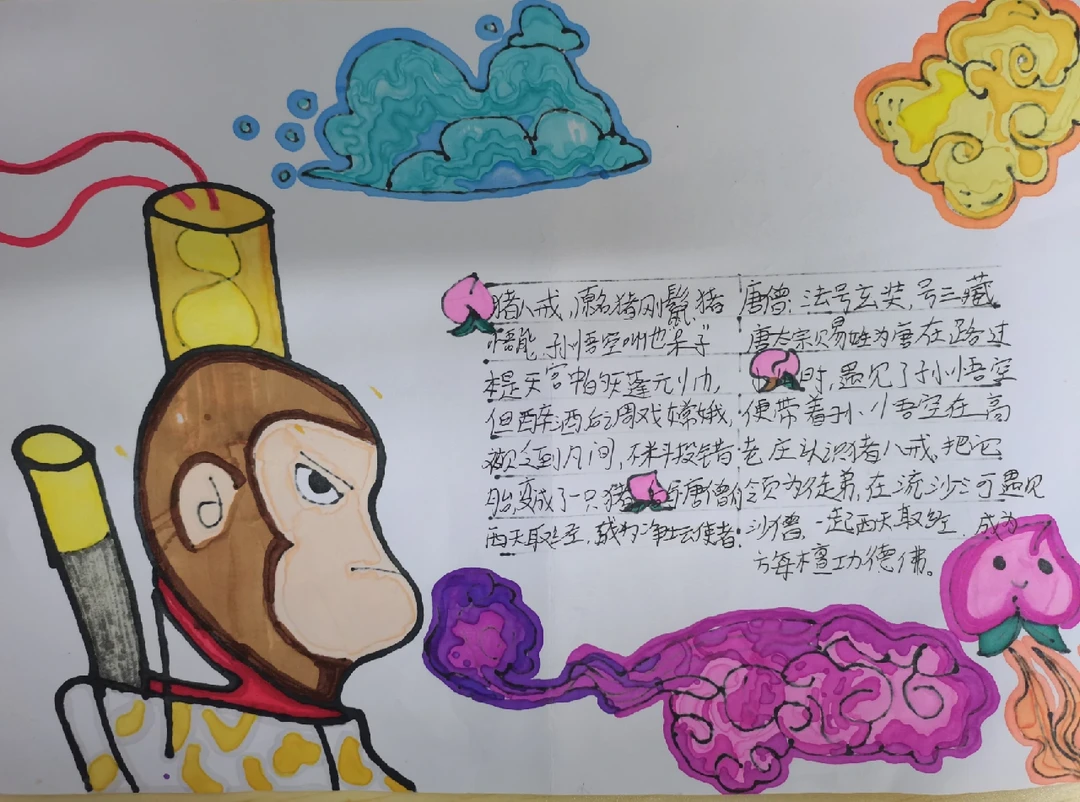 猪八戒,原名猪刚鬣,猪
悟能,孙悟空叫他呆子
本是天宫中的天蓬元帅,
但醉酒后调戏嫦娥,
到凡间,不料投错
胎,变成了一只猪
唐僧
西天取经,成为净坛使者.
唐僧:法号玄奘,号三藏
唐太宗赐姓为唐在路过
时,遇见了孙悟空
便带着孙小悟空在高
老庄认识猪八戒,把它
领为徒弟,在流沙河遇见
沙僧,一起西天取经,成为
檀功德佛。